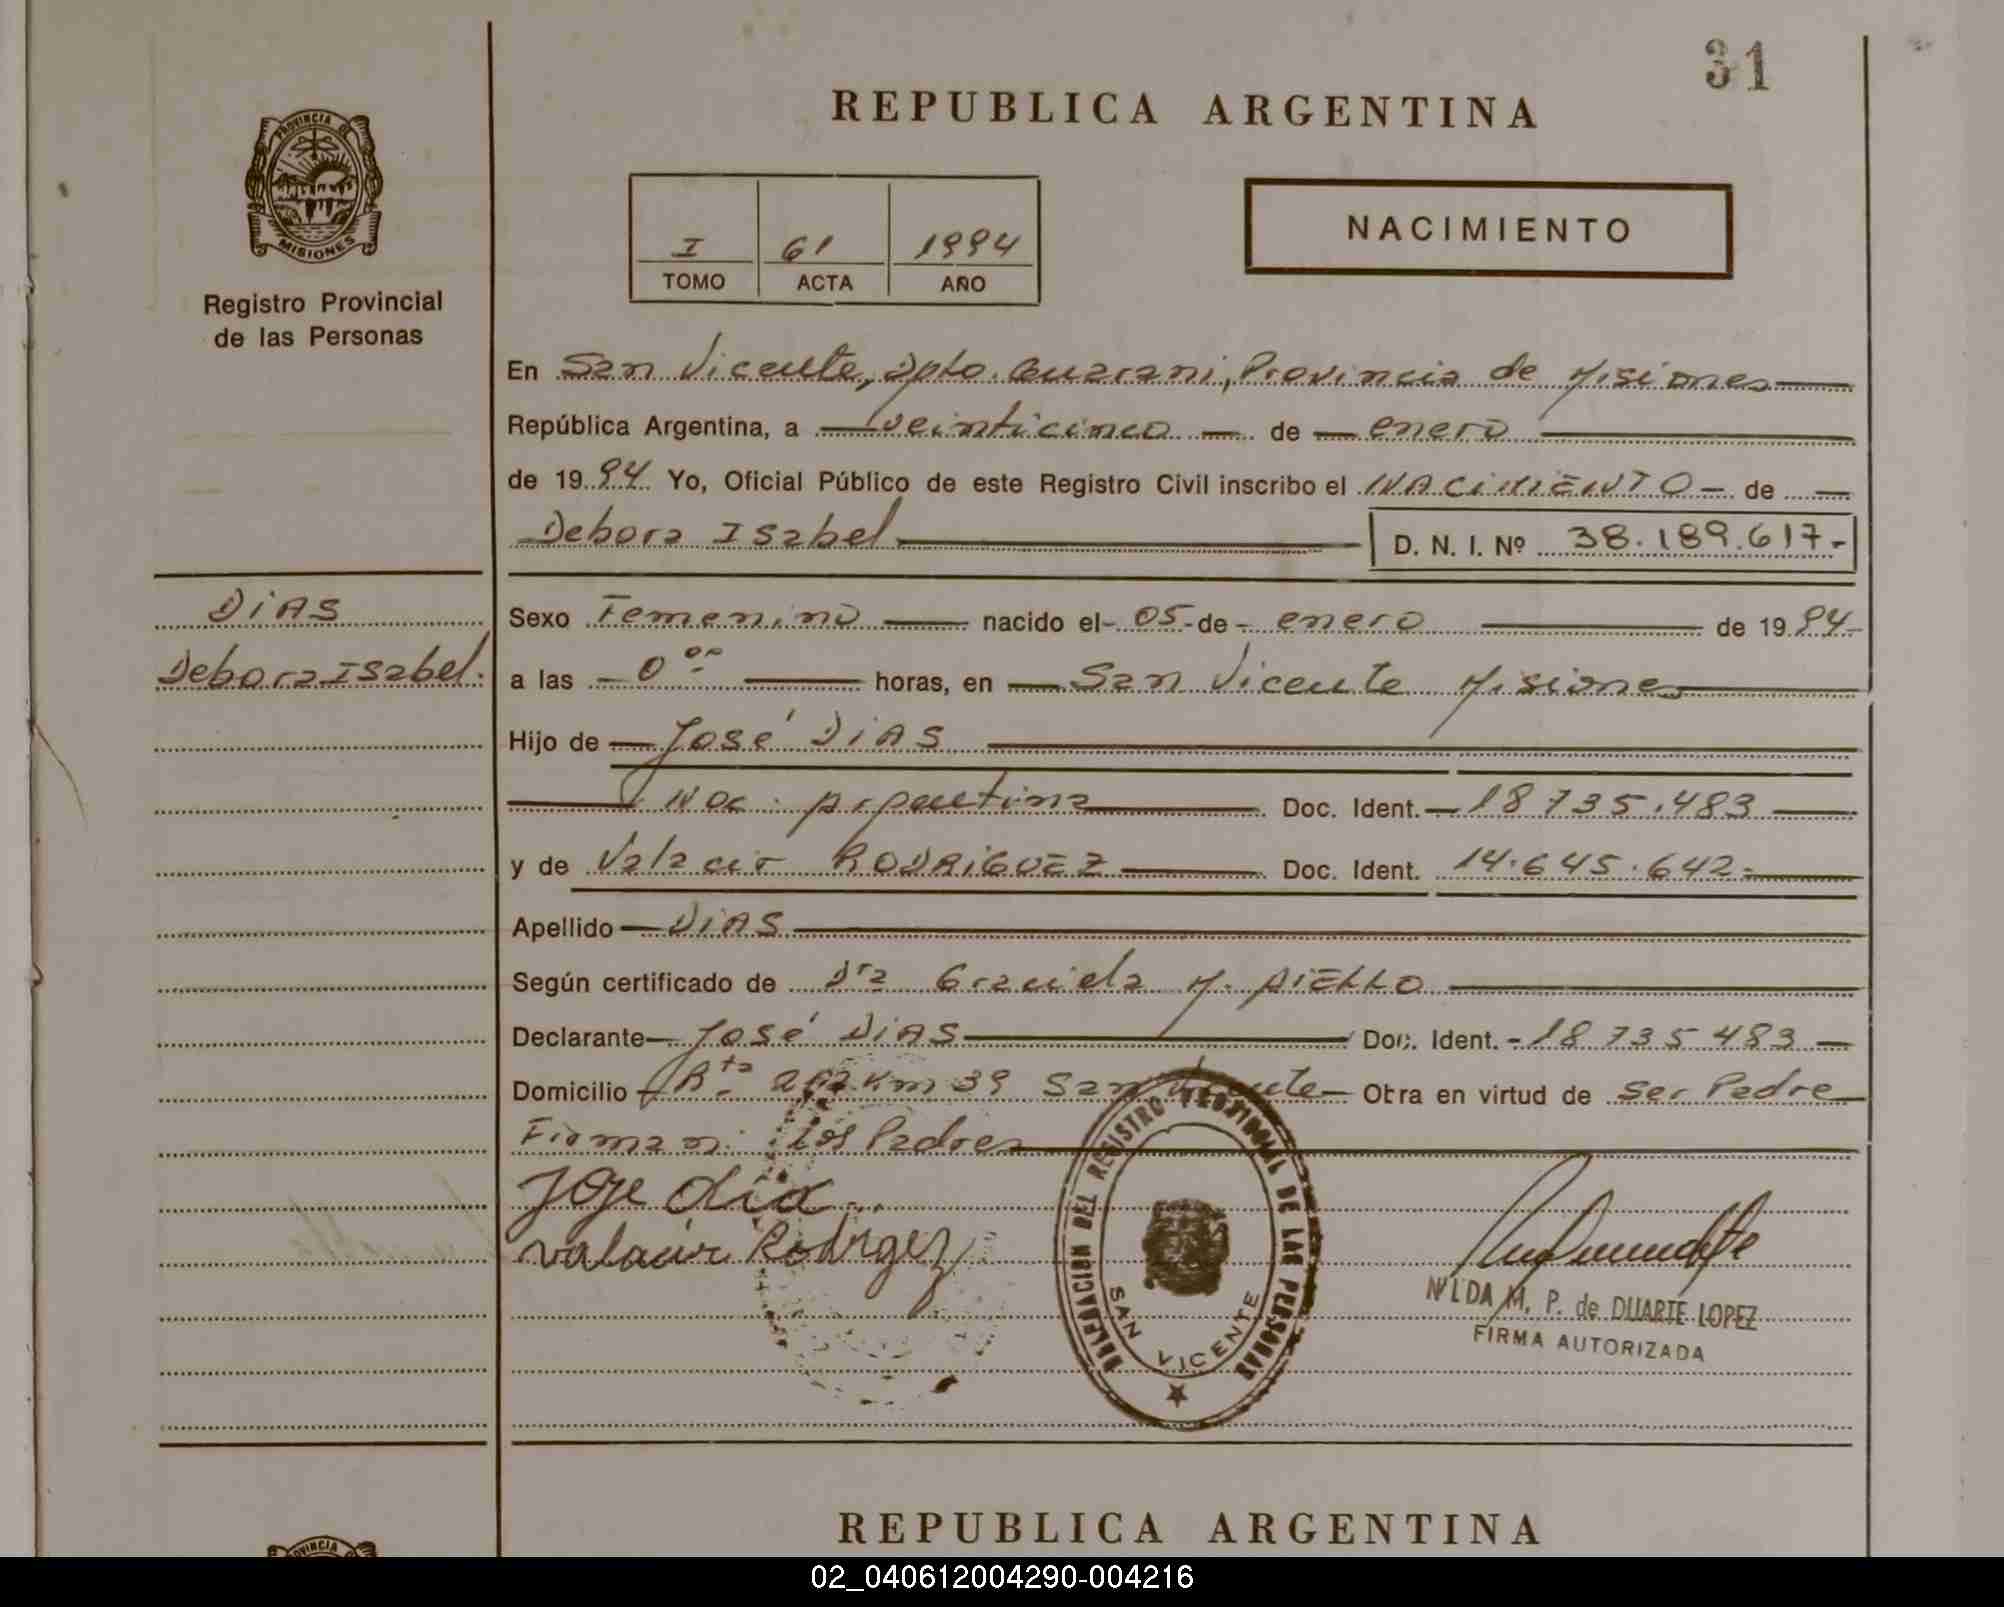 31
REPUBLICA ARGENTINA
PROVINCIA DE
MISIONES
Registro Provincial
de las Personas
NACIMIENTO
I 61 1994
TOMO ACTA AÑO
En San Vicente, Dpto. Guarani, Provincia de Misiones
República Argentina, a veinticinco de enero
de 1994 Yo, Oficial Público de este Registro Civil inscribo el NACIMIENTO de
Debora Isabel D. N. I. Nº 38.189.617.-
DiAS
Debora Isabel.
Sexo Femenino nacido el 05 de enero de 1994
a las 0 oo horas, en San Vicente Misiones
Hijo de José DiAS
Nac. Argentina Doc. Ident. 18 735.483
y de Valacir RODRiGUEZ Doc. Ident. 14.645.642
Apellido DiAS
Según certificado de Dra Graciela M. AiELLO
Declarante José DiAS Doc. Ident. 18 735 483
Domicilio Rta 212 Km 39 San Vicente Obra en virtud de ser Padre
Firman: los Padres
Jose dia
valacir Rodrigez
DELEGACION DEL REGISTRO PROVINCIAL DE LAS PERSONAS
SAN VICENTE
NILDA M. P. de DUARTE LOPEZ
FIRMA AUTORIZADA
REPUBLICA ARGENTINA
02_040612004290-004216